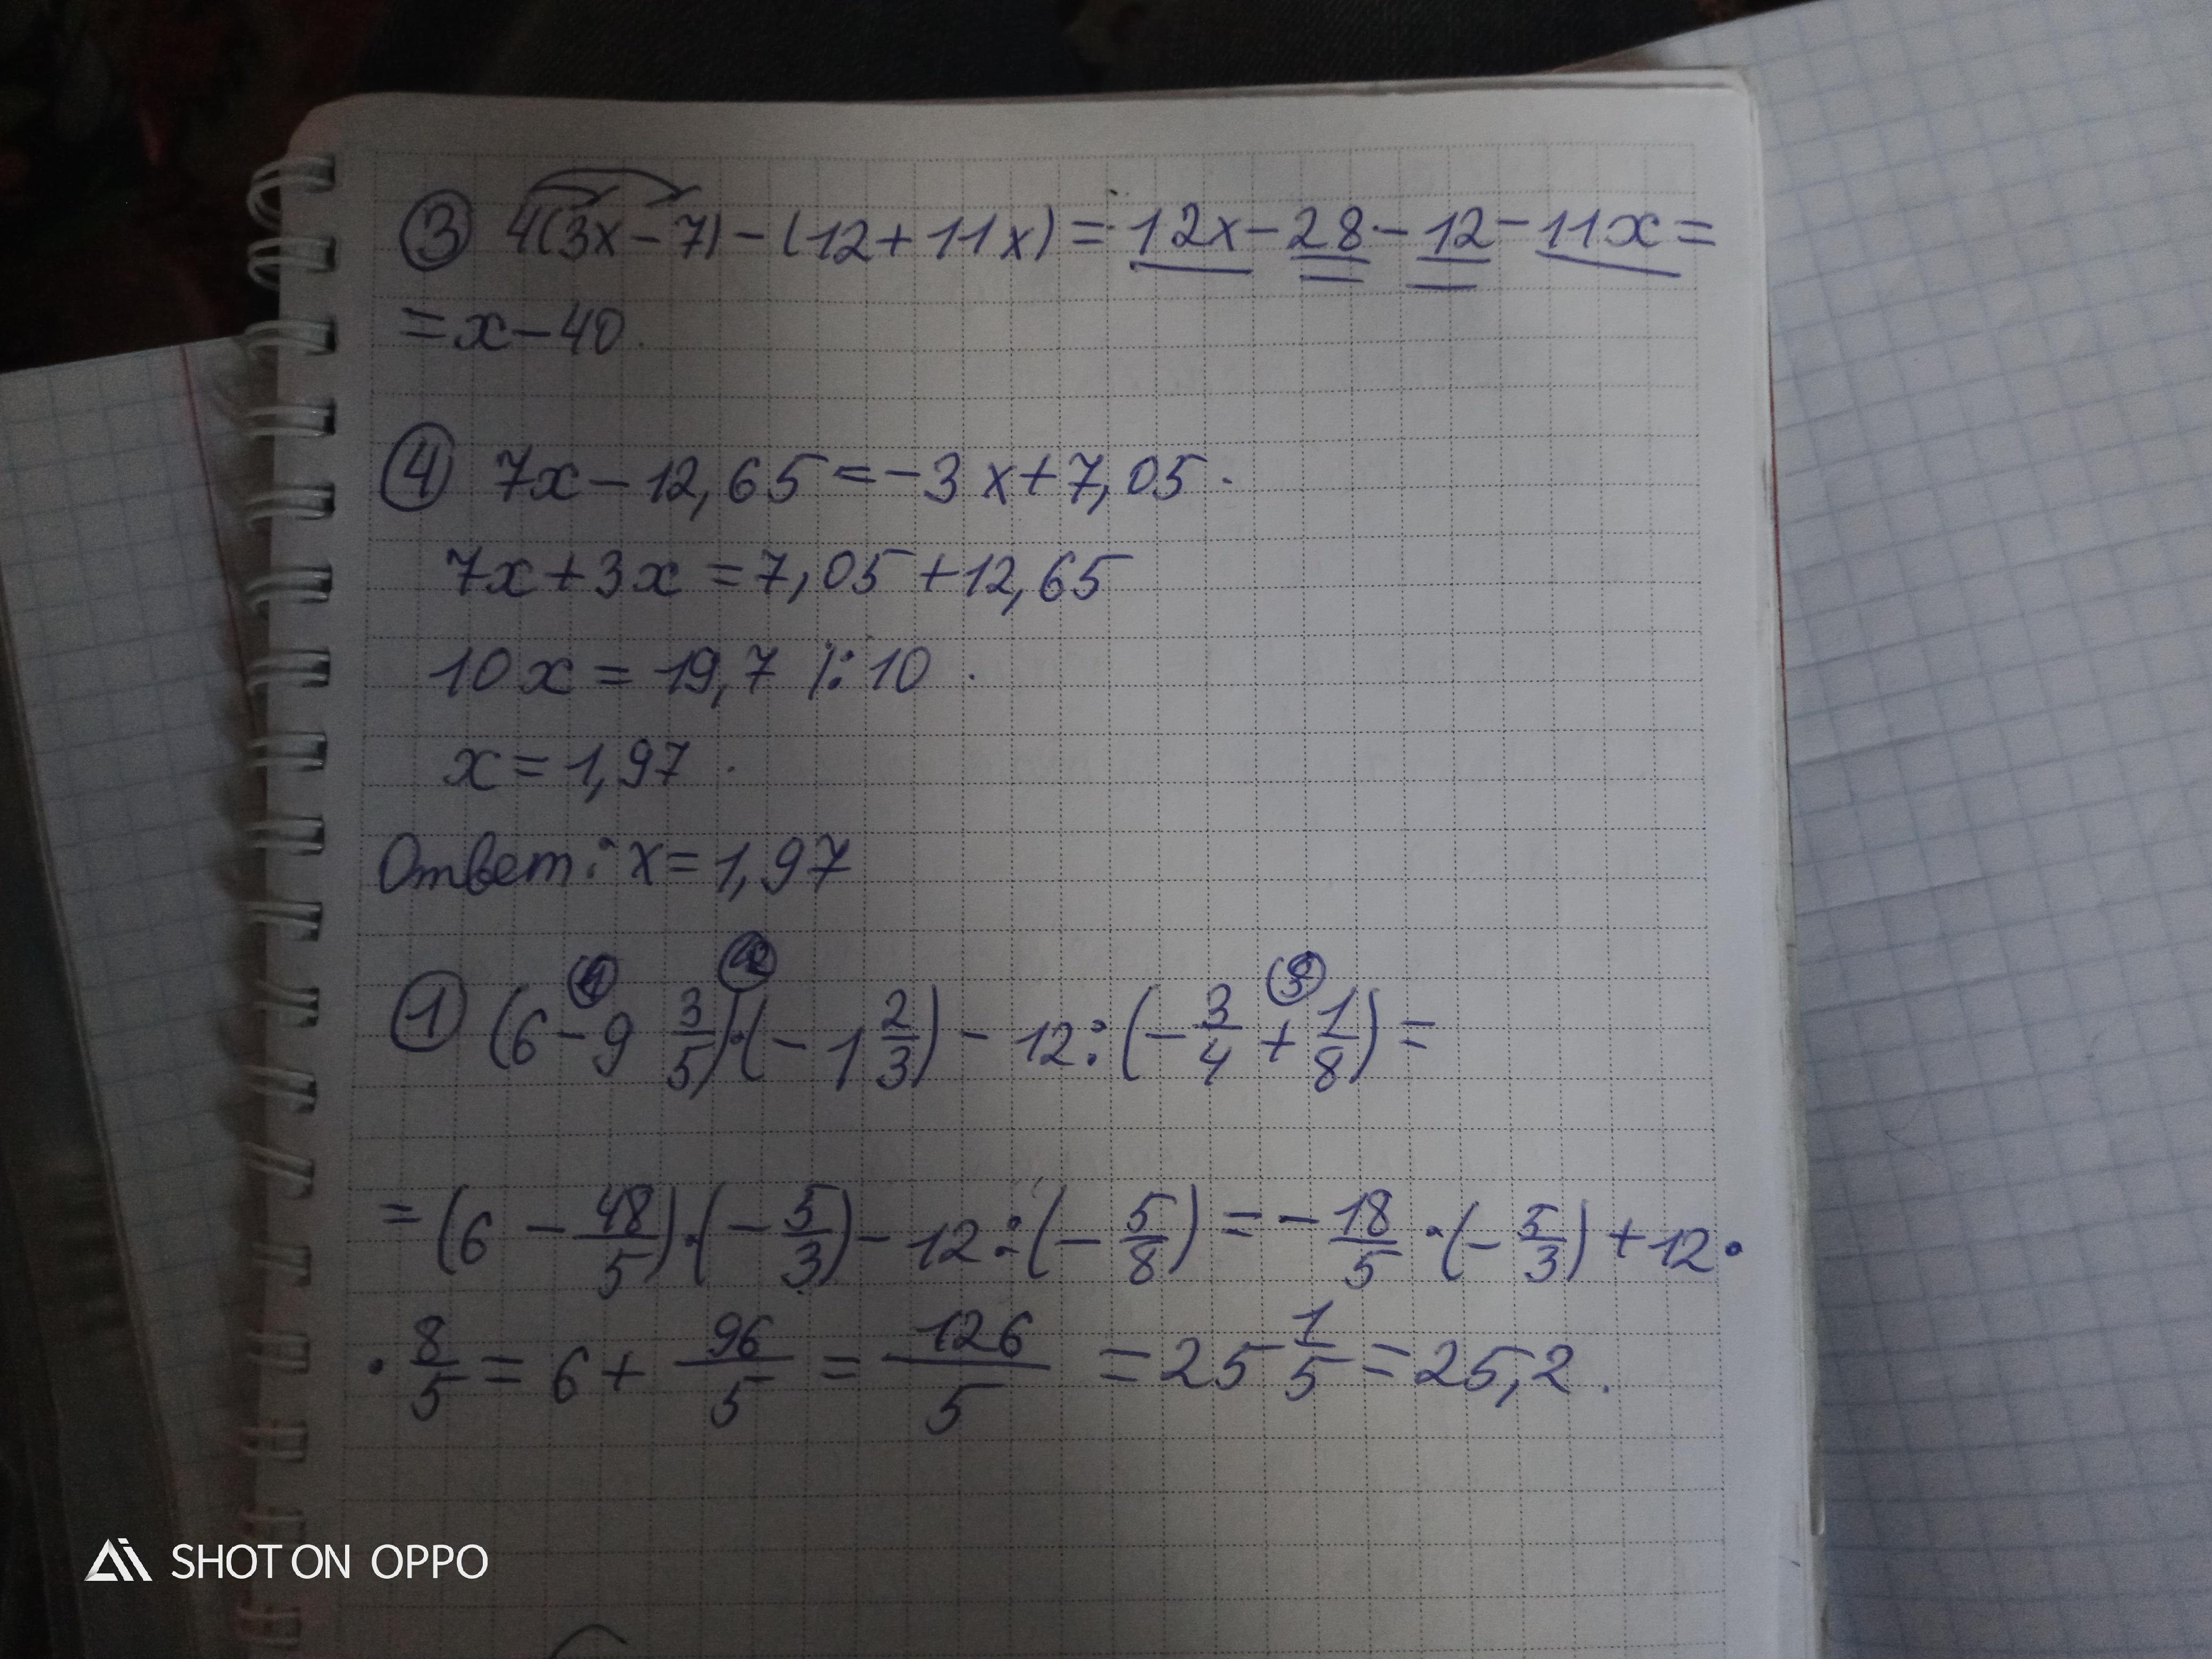 ③ 4(3x-7)-(12+11x)=12x-28-12-11x=
=x-40.
④ 7x-12,65=-3x+7,05.
7x+3x=7,05+12,65
10x=19,7 |:10.
x=1,97.
Ответ: x=1,97
① (6-9 3/5)·(-1 2/3)-12:(-3/4+1/8)=
=(6-48/5)·(-5/3)-12:(-5/8)=-18/5·(-5/3)+12·
·8/5=6+96/5=126/5=25 1/5=25,2.
SHOT ON OPPO